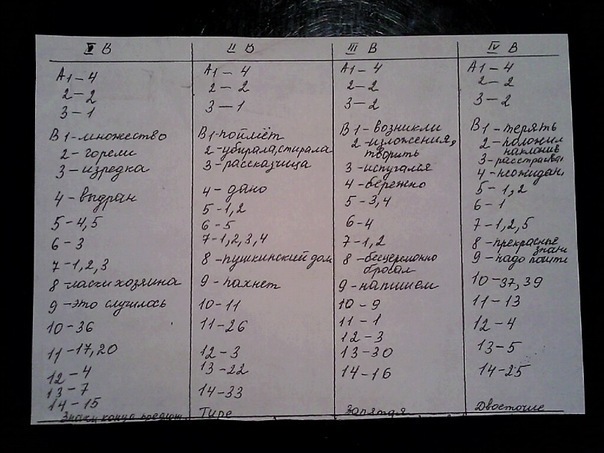 V В
А1-4
2-2
3-1
В1-множество
2-горели
3-изредка
4-выдран
5-4,5
6-3
7-1,2,3
8-часы хозяина
9-это случилось
10-36
11-17,20
12-4
13-7
14-15
Знаки конца
II В
А1-4
2-2
3-1
В1-поймёт
2-убирала,стирала
3-рассказчица
4-дано
5-1,2
6-5
7-1,2,3,4
8-пушкинский дом
9-пахнет
10-11
11-26
12-3
13-22
14-33
Тире
III В
А1-4
2-2
3-2
В1-возникли
2-изложения,
творить
3-испугался
4-бережно
5-3,4
6-4
7-1,2
8-бесцеремонно
бросал
9-напишем
10-9
11-1
12-3
13-30
14-16
Запятая
IV В
А1-4
2-2
3-2
В1-терять
2-положил
наклонив
4-неожидан
5-1,2
6-1
7-1,2,5
8-прекрасные
знани
9-надо пойти
10-37,39
11-13
12-4
13-5
14-25
Двоеточие